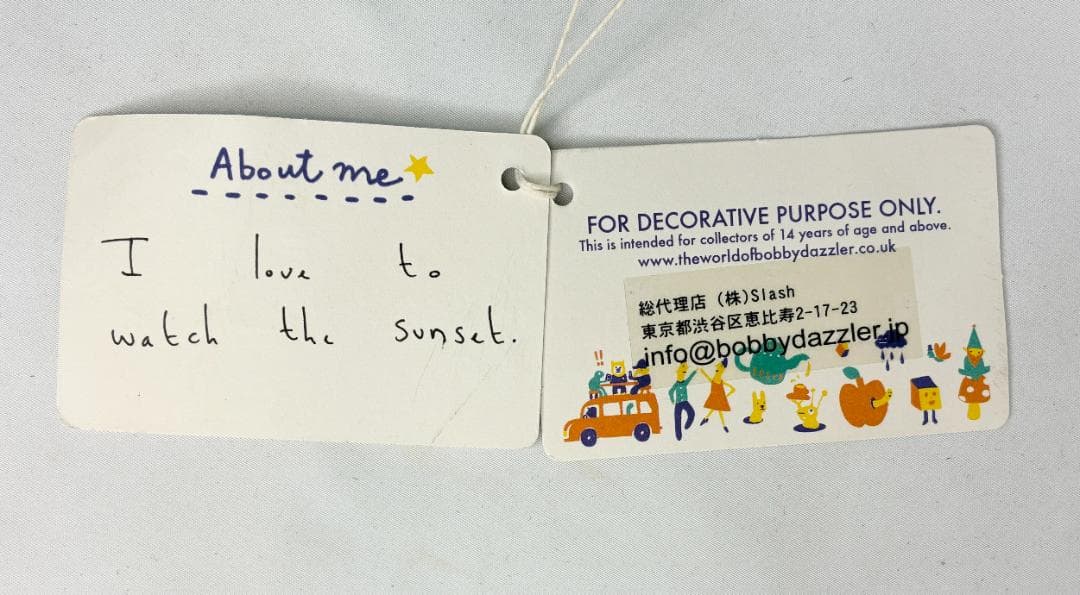 About me
I love to
watch the sunset.
FOR DECORATIVE PURPOSE ONLY.
This is intended for collectors of 14 years of age and above.
www.theworldofbobbydazzler.co.uk
総代理店 (株)Slash
東京都渋谷区恵比寿2-17-23
info@bobbydazzler.jp
!!